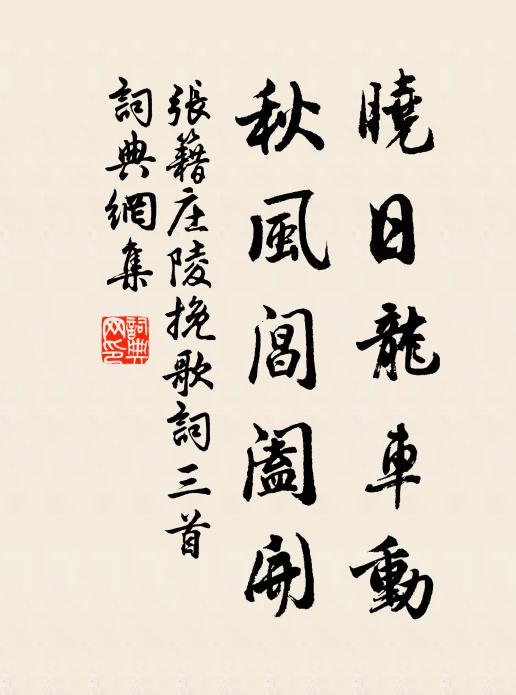 曉日龍車動
秋風閶闔開
張籍庄陵挽歌詞三首
詞典網集
詞典网印